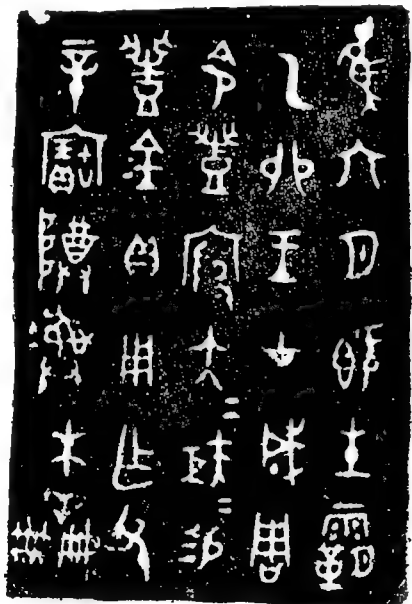 隹六月既生霸
乙卯王才成周
令豐殷大=矩=易
豐金貝用乍父
辛寶尊彝木羊冊